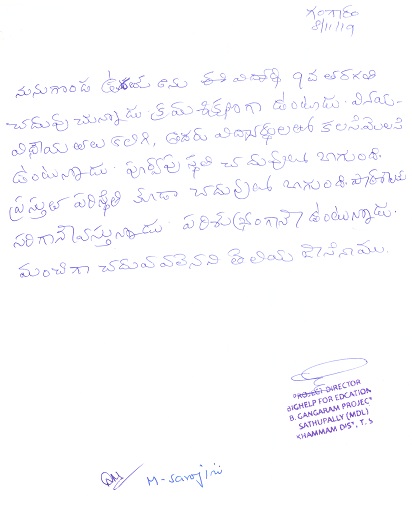 గంగారం
8/11/19
నునుగొండ ఉదయ అను ఈ విద్యార్థి 9వ తరగతి
చదువు చున్నాడు. క్రమశిక్షణగా ఉంటాడు. వినయ-
విధేయతలు కలిగి, ఇతరు విద్యార్థులతో కలసిమెలసి
ఉంటున్నాడు. పూర్వపు స్థితి చదువులో బాగుంది.
ప్రస్తుత పరిస్థితి కూడా చదువులో బాగుంది. పాఠశాలకు
సరిగానే వస్తున్నాడు. పరిశుభ్రంగానే ఉంటున్నాడు.
మంచిగా చదువవలెనని తెలియ చేసేనాము.
PROJECT DIRECTOR
BIGHELP FOR EDCATION
B. GANGARAM PROJECT
SATHUPALLY (MDL)
KHAMMAM DIST, T.S
M-Sarojini